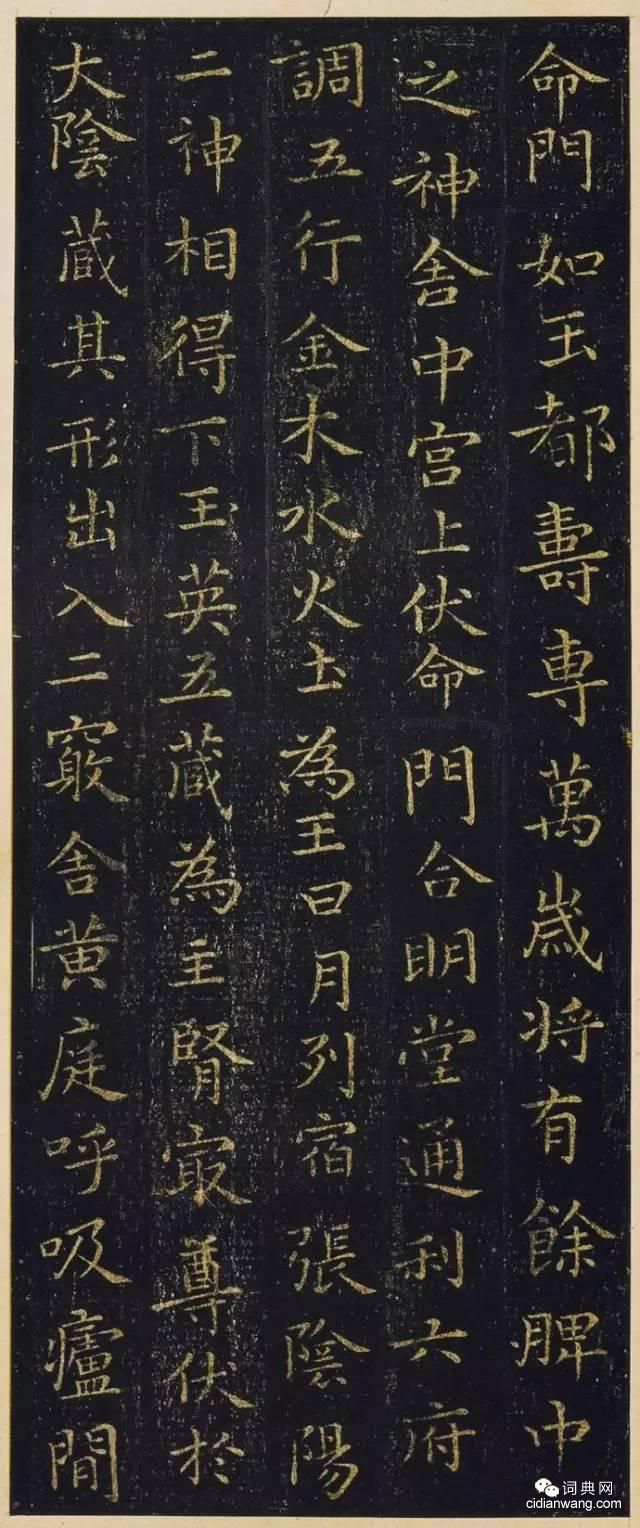 命門如玉都壽専萬歲将有餘脾中
之神舍中宫上伏命門合明堂通利六府
調五行金木水火土為王日月列宿張陰陽
二神相得下玉英五蔵為主腎冣尊伏於
大陰蔵其形出入二竅舍黄庭呼吸廬閒
词典网
cidianwang.com